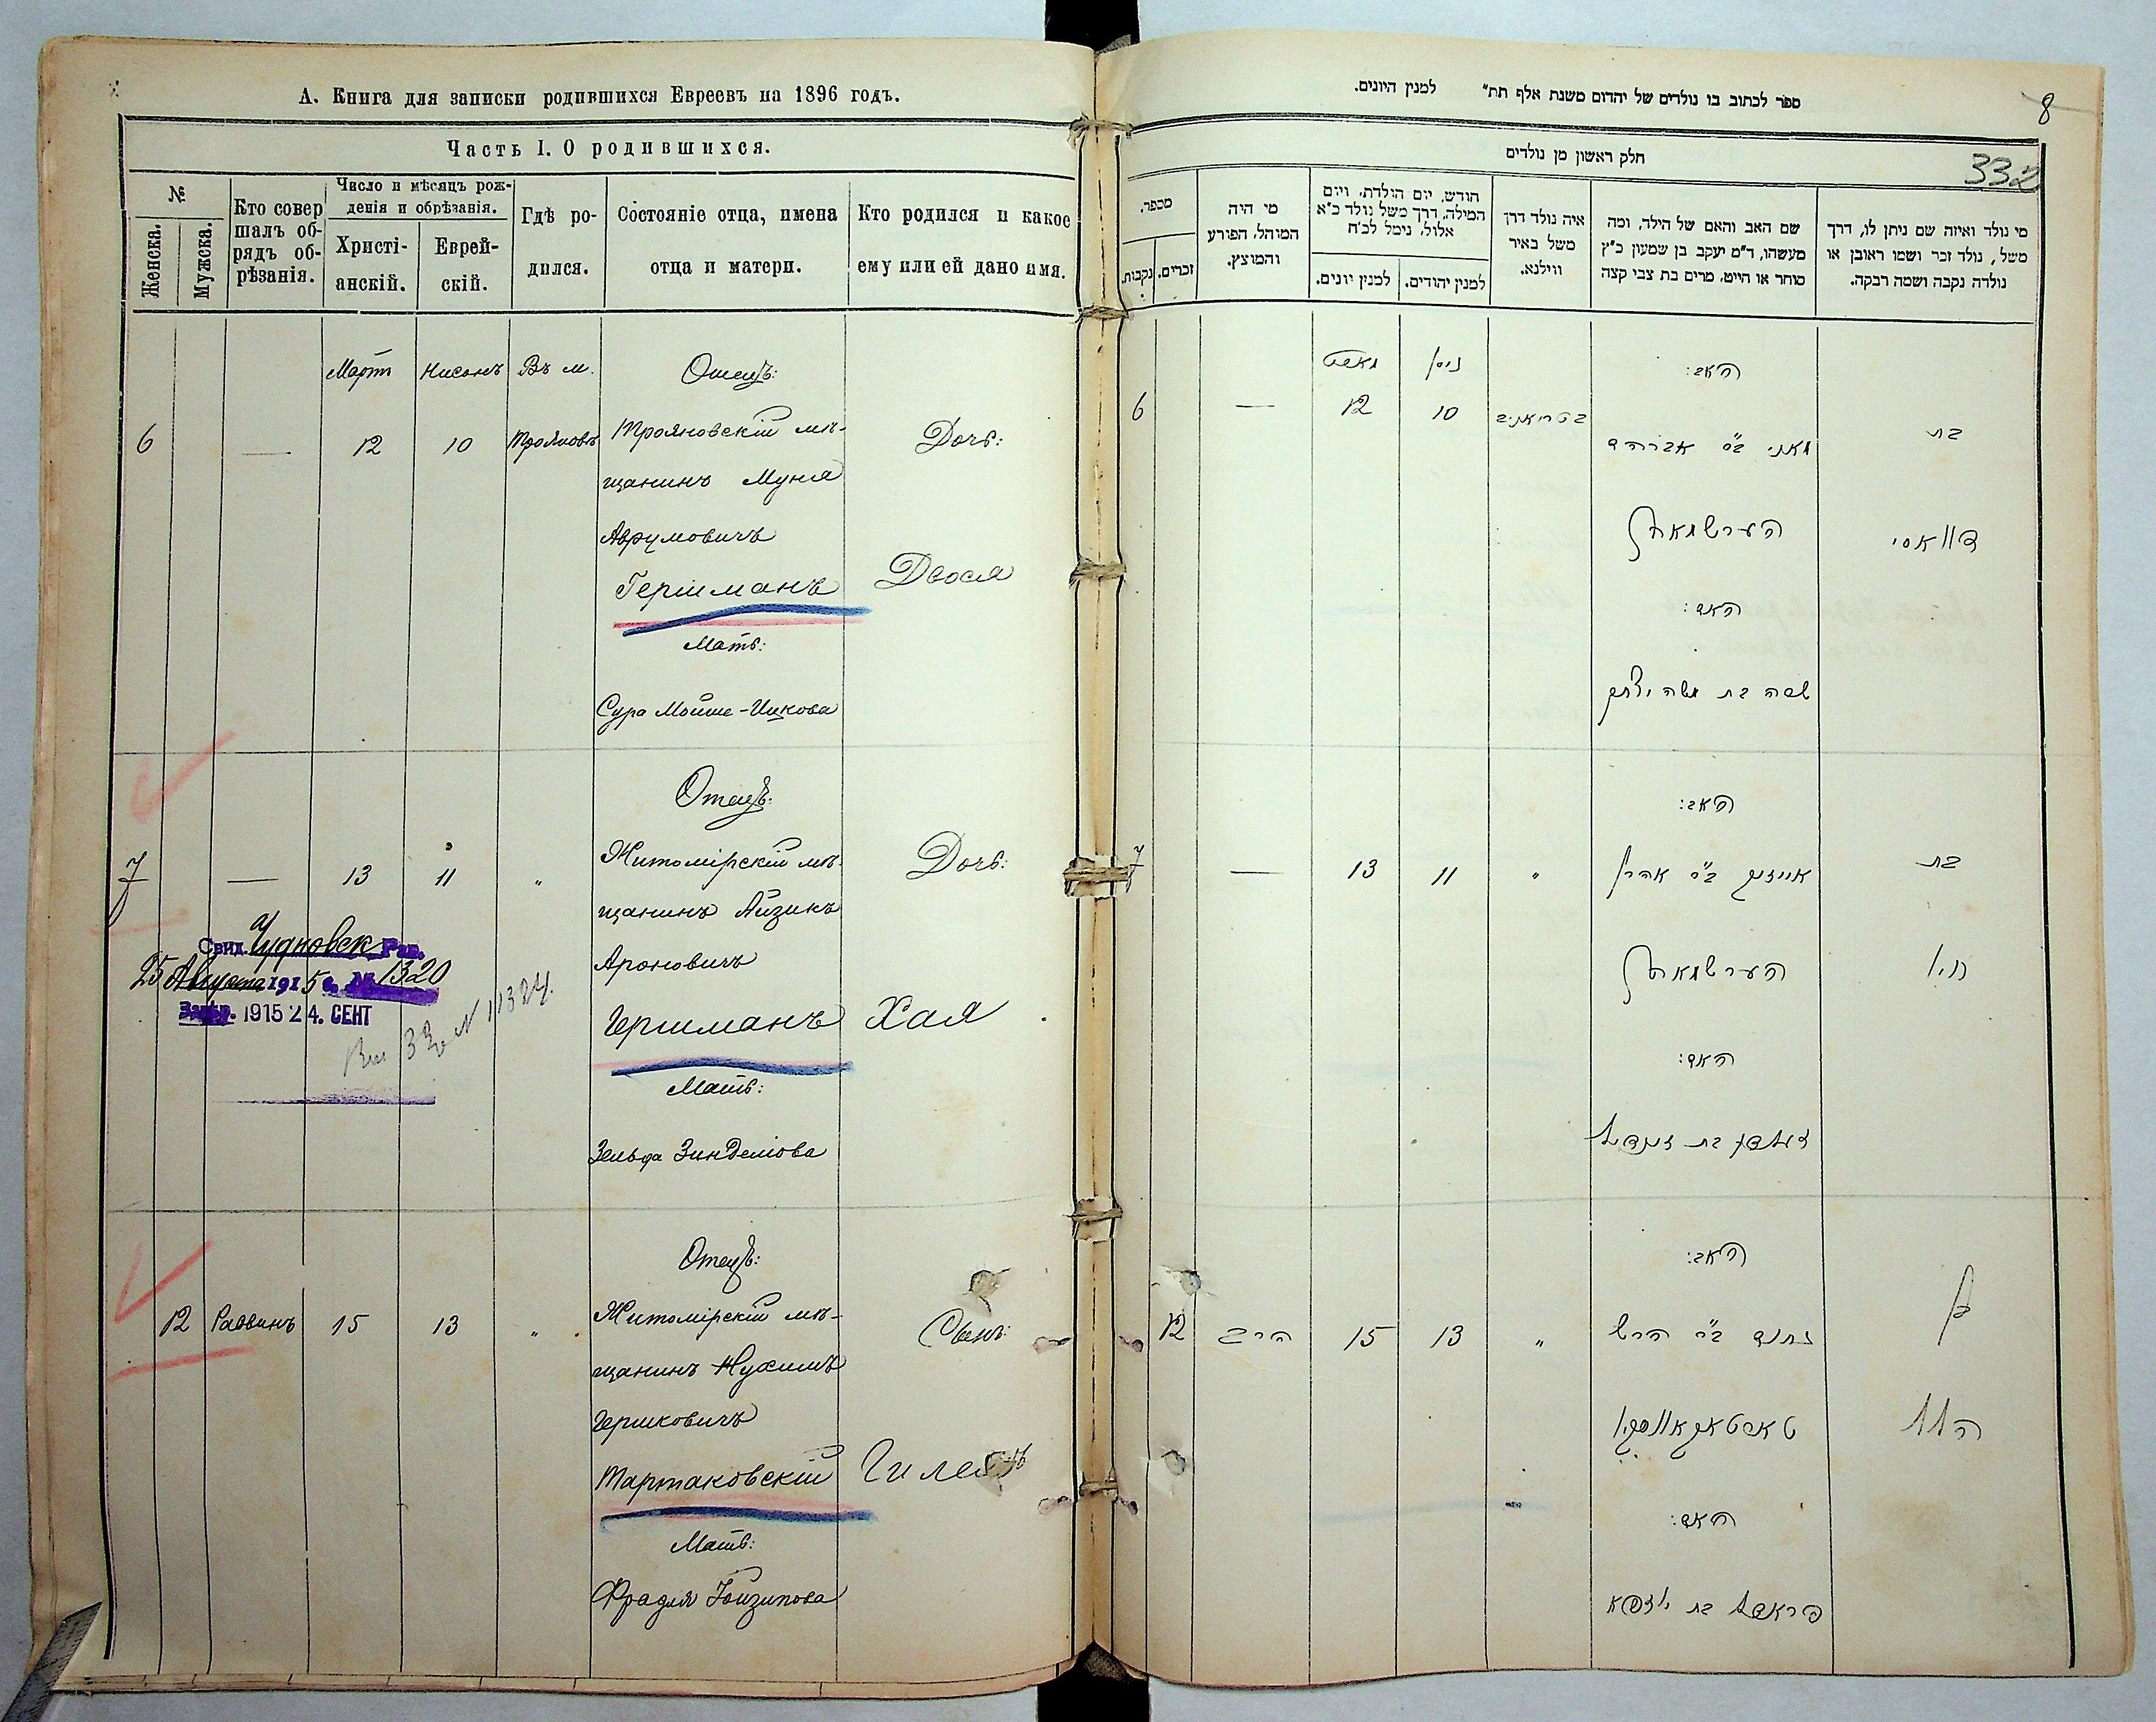 А. Книга для записки родившихся Евреевъ на 1896 годъ.
Часть I. О родившихся.
№
Женска.
Мужска.
Кто совер
шалъ об-
рядъ об-
рѣзанія.
Число и мѣсяцъ рож-
денія и обрѣзанія.
Христі-
анскій.
Еврей-
скій.
Гдѣ ро-
дился.
Состояніе отца, имена
отца и матери.
Кто родился и какое
ему или ей дано имя.
Мартъ Нисонъ Въ м. Отецъ:
6 — 12 10 Трояновъ Трояновскій мѣ- Дочь:
щанинъ Муня
Аврумовичъ
Гершманъ Двося
Мать:
Сура Мойше-Ицкова
Отецъ:
7 — 13 11 „ Житомірскій мѣ- Дочь:
щанинъ Айзикъ
Ароновичъ
Гершманъ Хая
Мать:
Зельда Зинделіова
Свид. Чудновск Рав.
25 Августа 1915 г. № 1320
1915 24. СЕНТ
Отецъ:
12 Раввинъ 15 13 „ Житомірскій мѣ- Сынъ:
щанинъ Нухимъ
Гершковичъ
Тартаковскій
Мать:
Фрадля
ספר לכתוב בו נולדים של יהדום משנת אלף תת״ למנין היונים.
8
חלק ראשון מן נולדים
332
מספר.
נקבות.
זכרים.
מי היה
המוהל, הפורע
והמוצץ.
חודש, יום הולדת, ויום
המילה, דרך משל נולד כ״א
אלול, נימל לכ״ח
למנין יונים.
למנין יהודים.
איה נולד דרך
משל באיר
ווילנא.
שם האב והאם של הילד, ומה
מעשהו, ד״מ יעקב בן שמעון כ״ץ
סוחר או חייט, מרים בת צבי קצה
מי נולד ואיזה שם ניתן לו, דרך
משל, נולד זכר ושמו ראובן או
נולדה נקבה ושמה רבקה.
מארט ניסן האב:
6 — 12 10 בת
מאני ב״ר אברהם
הערשמאן דוואסי
האם:
שרה בת משה יצחק
האב:
7 — 13 11 „ אייזיק ב״ר אהרן בת
הערשמאן חיי
האם:
האב:
12 הרב 15 13 „ נחום ב״ר הירש בן
טארטאקאווסקי
האם:
פראדל בת